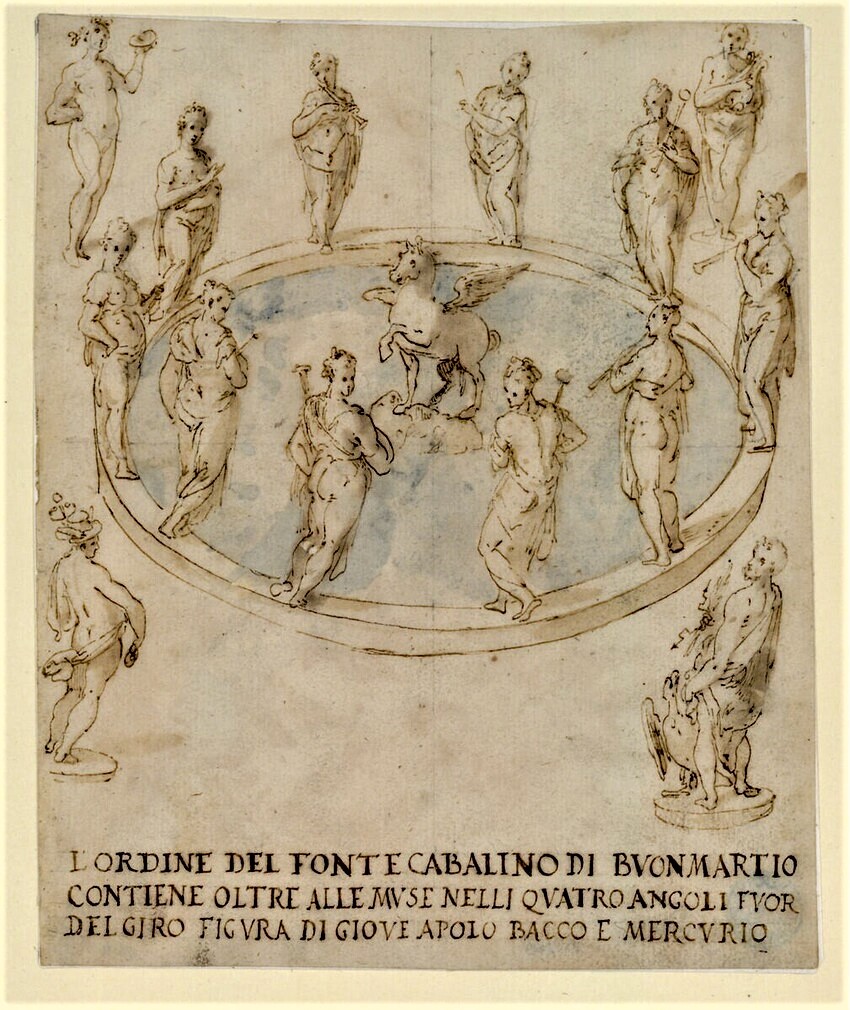 L'ORDINE DEL FONTE CABALINO DI BVONMARTIO
CONTIENE OLTRE ALLE MVSE NELLI QVATRO ANGOLI FVOR
DEL GIRO FIGVRA DI GIOVE APOLO BACCO E MERCVRIO